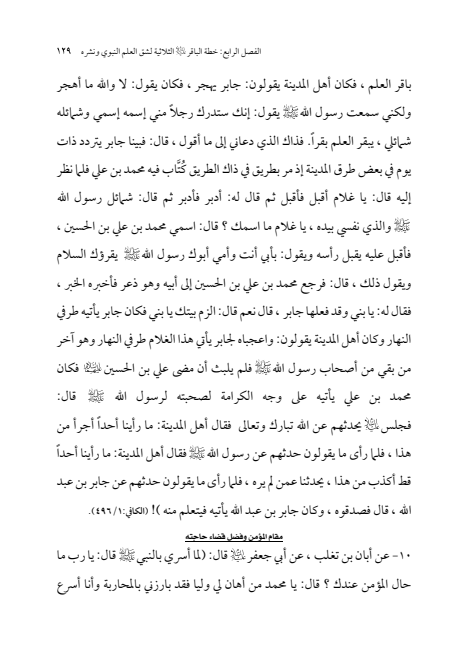 الفصل الرابع: خطة الباقر ﷺ الثلاثية لشق العلم النبوي ونشره ١٢٩
باقر العلم ، فكان أهل المدينة يقولون: جابر يهجر ، فكان يقول: لا والله ما أهجر
ولكني سمعت رسول الله ﷺ يقول: إنك ستدرك رجلاً مني إسمه إسمي وشمائله
شمائلي ، يبقر العلم بقراً. فذاك الذي دعاني إلى ما أقول ، قال: فبينا جابر يتردد ذات
يوم في بعض طرق المدينة إذ مر بطريق في ذاك الطريق كُتَّاب فيه محمد بن علي فلما نظر
إليه قال: يا غلام أقبل فأقبل ثم قال له: أدبر فأدبر ثم قال: شمائل رسول الله
ﷺ والذي نفسي بيده ، يا غلام ما اسمك ؟ قال: اسمي محمد بن علي بن الحسين ،
فأقبل عليه يقبل رأسه ويقول: بأبي أنت وأمي أبوك رسول الله ﷺ يقرؤك السلام
ويقول ذلك ، قال: فرجع محمد بن علي بن الحسين إلى أبيه وهو ذعر فأخبره الخبر ،
فقال له: يا بني وقد فعلها جابر ، قال نعم قال: الزم بيتك يا بني فكان جابر يأتيه طرفي
النهار وكان أهل المدينة يقولون: واعجباه لجابر يأتي هذا الغلام طرفي النهار وهو آخر
من بقي من أصحاب رسول الله ﷺ فلم يلبث أن مضى علي بن الحسين فكان
محمد بن علي يأتيه على وجه الكرامة لصحبته لرسول الله ﷺ قال:
فجلس يحدثهم عن الله تبارك وتعالى فقال أهل المدينة: ما رأينا أحداً أجرأ من
هذا ، فلما رأى ما يقولون حدثهم عن رسول الله ﷺ فقال أهل المدينة: ما رأينا أحداً
قط أكذب من هذا ، يحدثنا عمن لم يره ، فلما رأى ما يقولون حدثهم عن جابر بن عبد
الله ، قال فصدقوه ، وكان جابر بن عبد الله يأتيه فيتعلم منه )! (الكافي:١/٤٩٦).
مقام المؤمن وفضل قضاء حاجته
١٠- عن أبان بن تغلب ، عن أبي جعفر قال: (لما أسري بالنبي ﷺ قال: يا رب ما
حال المؤمن عندك ؟ قال: يا محمد من أهان لي وليا فقد بارزني بالمحاربة وأنا أسرع